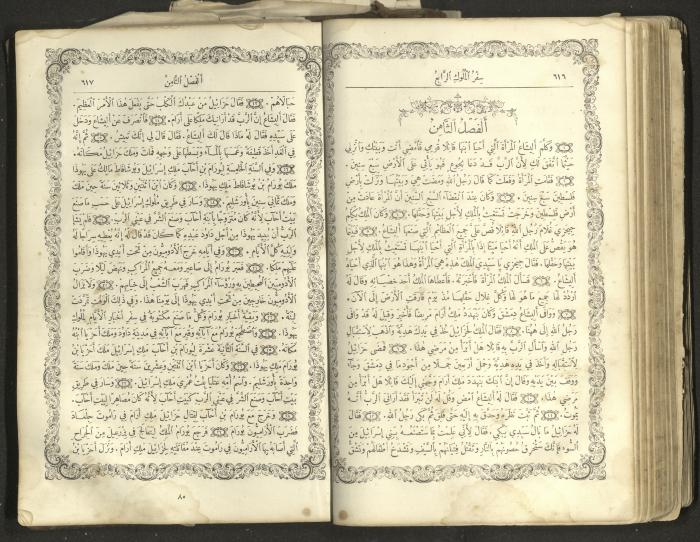 ٦١٦
سفر الملوك الرابع
ألفصل الثامن
وكلم أليشاع المرأة التي أحيا ابنها قائلا قومي فامضي أنت وبيتك وانزلي
حيثما اتفق لك لأن الرب قد دعا بالجوع فهو يأتي على الأرض سبع سنين.
فقامت المرأة وفعلت كما قال رجل الله ومضت هي وبيتها ونزلت بأرض
فلسطين سبع سنين. وكان عند انقضاء السبع السنين أن المرأة عادت من
أرض فلسطين وخرجت تستغيث بالملك لأجل بيتها وحقلها. وكان الملك يكلم
جيحزي غلام رجل الله قائلا قص علي جميع العظائم التي صنعها أليشاع. فبينما
هو يقص على الملك أنه أحيا ميتا إذا بالمرأة التي أحيا ابنها تستغيث بالملك لأجل
بيتها وحقلها. فقال جيحزي يا سيدي الملك هذه هي المرأة وهذا هو ابنها الذي أحياه
أليشاع. فسأل الملك المرأة فأخبرته. فأعطاها الملك أحد خصيانه وقال له
اردد لها جميع ما هو لها وكل غلال حقلها منذ يوم فارقت الأرض إلى الآن.
ووافى أليشاع دمشق وكان بنهدد ملك أرام مريضا فأخبر وقيل له قد وافى
رجل الله إلى هنا. فقال الملك لحزائيل خذ في يدك هدية واذهب لاستقبال
رجل الله واسأل الرب به قائلا هل أبرأ من مرضي هذا. فمضى حزائيل
لاستقباله وأخذ في يده هدية وحمل أربعين جملا من أجود ما في دمشق وجاء
ووقف بين يديه وقال إن ابنك بنهدد ملك أرام وجهني إليك قائلا هل أبرأ من
مرضي هذا. فقال له أليشاع امض وقل له لن تبرأ فقد أراني الرب أنه
يموت. ثم ثبت نظره وحدق به إليه حتى قلق ثم بكى رجل الله. فقال
له حزائيل ما بال سيدي يبكي. فقال لأني علمت بما ستصنعه ببني إسرائيل من
السوء فإنك ستحرق حصونهم بالنار وتقتل فتيانهم بالسيف وتشدخ أطفالهم وتشق
ألفصل الثامن
٦١٧
حبالاهم. فقال حزائيل من عبدك الكلب حتى يفعل هذا الأمر العظيم.
فقال أليشاع إن الرب قد أرانيك ملكا على أرام. فانصرف عن أليشاع ودخل
على سيده فقال له ماذا قال لك أليشاع. فقال قال لي إنك تعيش. ثم إنه
في الغد أخذ قطيفة وغمسها بالماء وبسطها على وجهه فمات وملك حزائيل مكانه.
وفي السنة الخامسة ليورام بن أحآب ملك إسرائيل ويوشافاط مالك على يهوذا
ملك يورام بن يوشافاط ملك يهوذا. وكان ابن اثنتين وثلاثين سنة حين ملك
وملك ثماني سنين بأورشليم. وسار في طريق ملوك إسرائيل على حسب ما صنع
بيت أحآب لأنه كان متزوجا بابنة أحآب وصنع الشر في عيني الرب. فلم يشإ
الرب أن يبيد يهوذا من أجل داود عبده كما كان قد قال له إنه يعطيه سراجا له
ولبنيه كل الأيام. وفي أيامه خرج الأدوميون من تحت أيدي يهوذا وأقاموا
عليهم ملكا. فعبر يورام إلى صاعير ومعه جميع المراكب ونهض ليلا وضرب
الأدوميين المحيطين به ورؤساء المراكب فهرب الشعب إلى خيامهم. ولا يزال
الأدوميون خارجين من تحت أيدي يهوذا إلى يومنا هذا. وفي ذلك الوقت خرجت
لبنة. وبقية أخبار يورام وكل ما صنع مكتوبة في سفر أخبار الأيام لملوك
يهوذا. واضطجع يورام مع آبائه وقبر مع آبائه في مدينة داود وملك أحزيا ابنه
مكانه. في السنة الثانية عشرة ليورام بن أحآب ملك إسرائيل ملك أحزيا بن
يورام ملك يهوذا. وكان أحزيا ابن اثنتين وعشرين سنة حين ملك وملك سنة
واحدة بأورشليم. واسم أمه عتليا بنت عمري ملك إسرائيل. وسار في طريق
بيت أحآب وصنع الشر في عيني الرب كبيت أحآب لأنه كان صاهرا لبيت أحآب.
وخرج مع يورام بن أحآب لقتال حزائيل ملك أرام في راموت جلعاد
فضرب الأراميون يورام. فرجع يورام الملك ليتعالج في يزرعيل من الجراح
التي أصابه بها الأراميون في راموت عند مقاتلته لحزائيل ملك أرام. ونزل أحزيا بن
٨٥